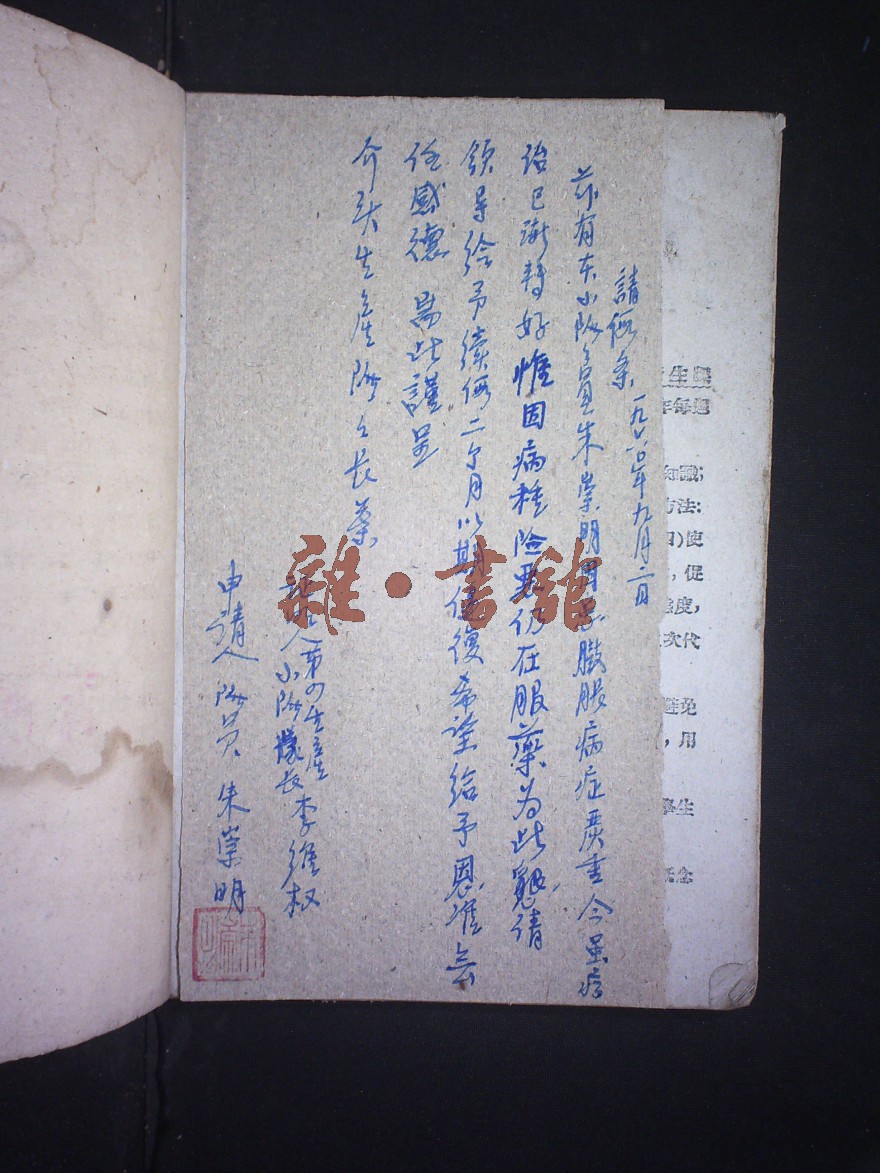 請假条 一九六〇年九月二日
茲有本小隊々員朱崇明因患臌脹病症严重今虽
治已漸轉好惟因病種險惡仍在服藥为此懇請
領导給予續假二个月以期復希望給予恩准無
任感德 為此謹呈
生產隊々長蔡
証明人第四生產
小隊長李維权
申請人 隊員 朱崇明
雜·書館
年每週
知識;
方法;
四)使
，促
度，
次代
避免
，用
學生
概念